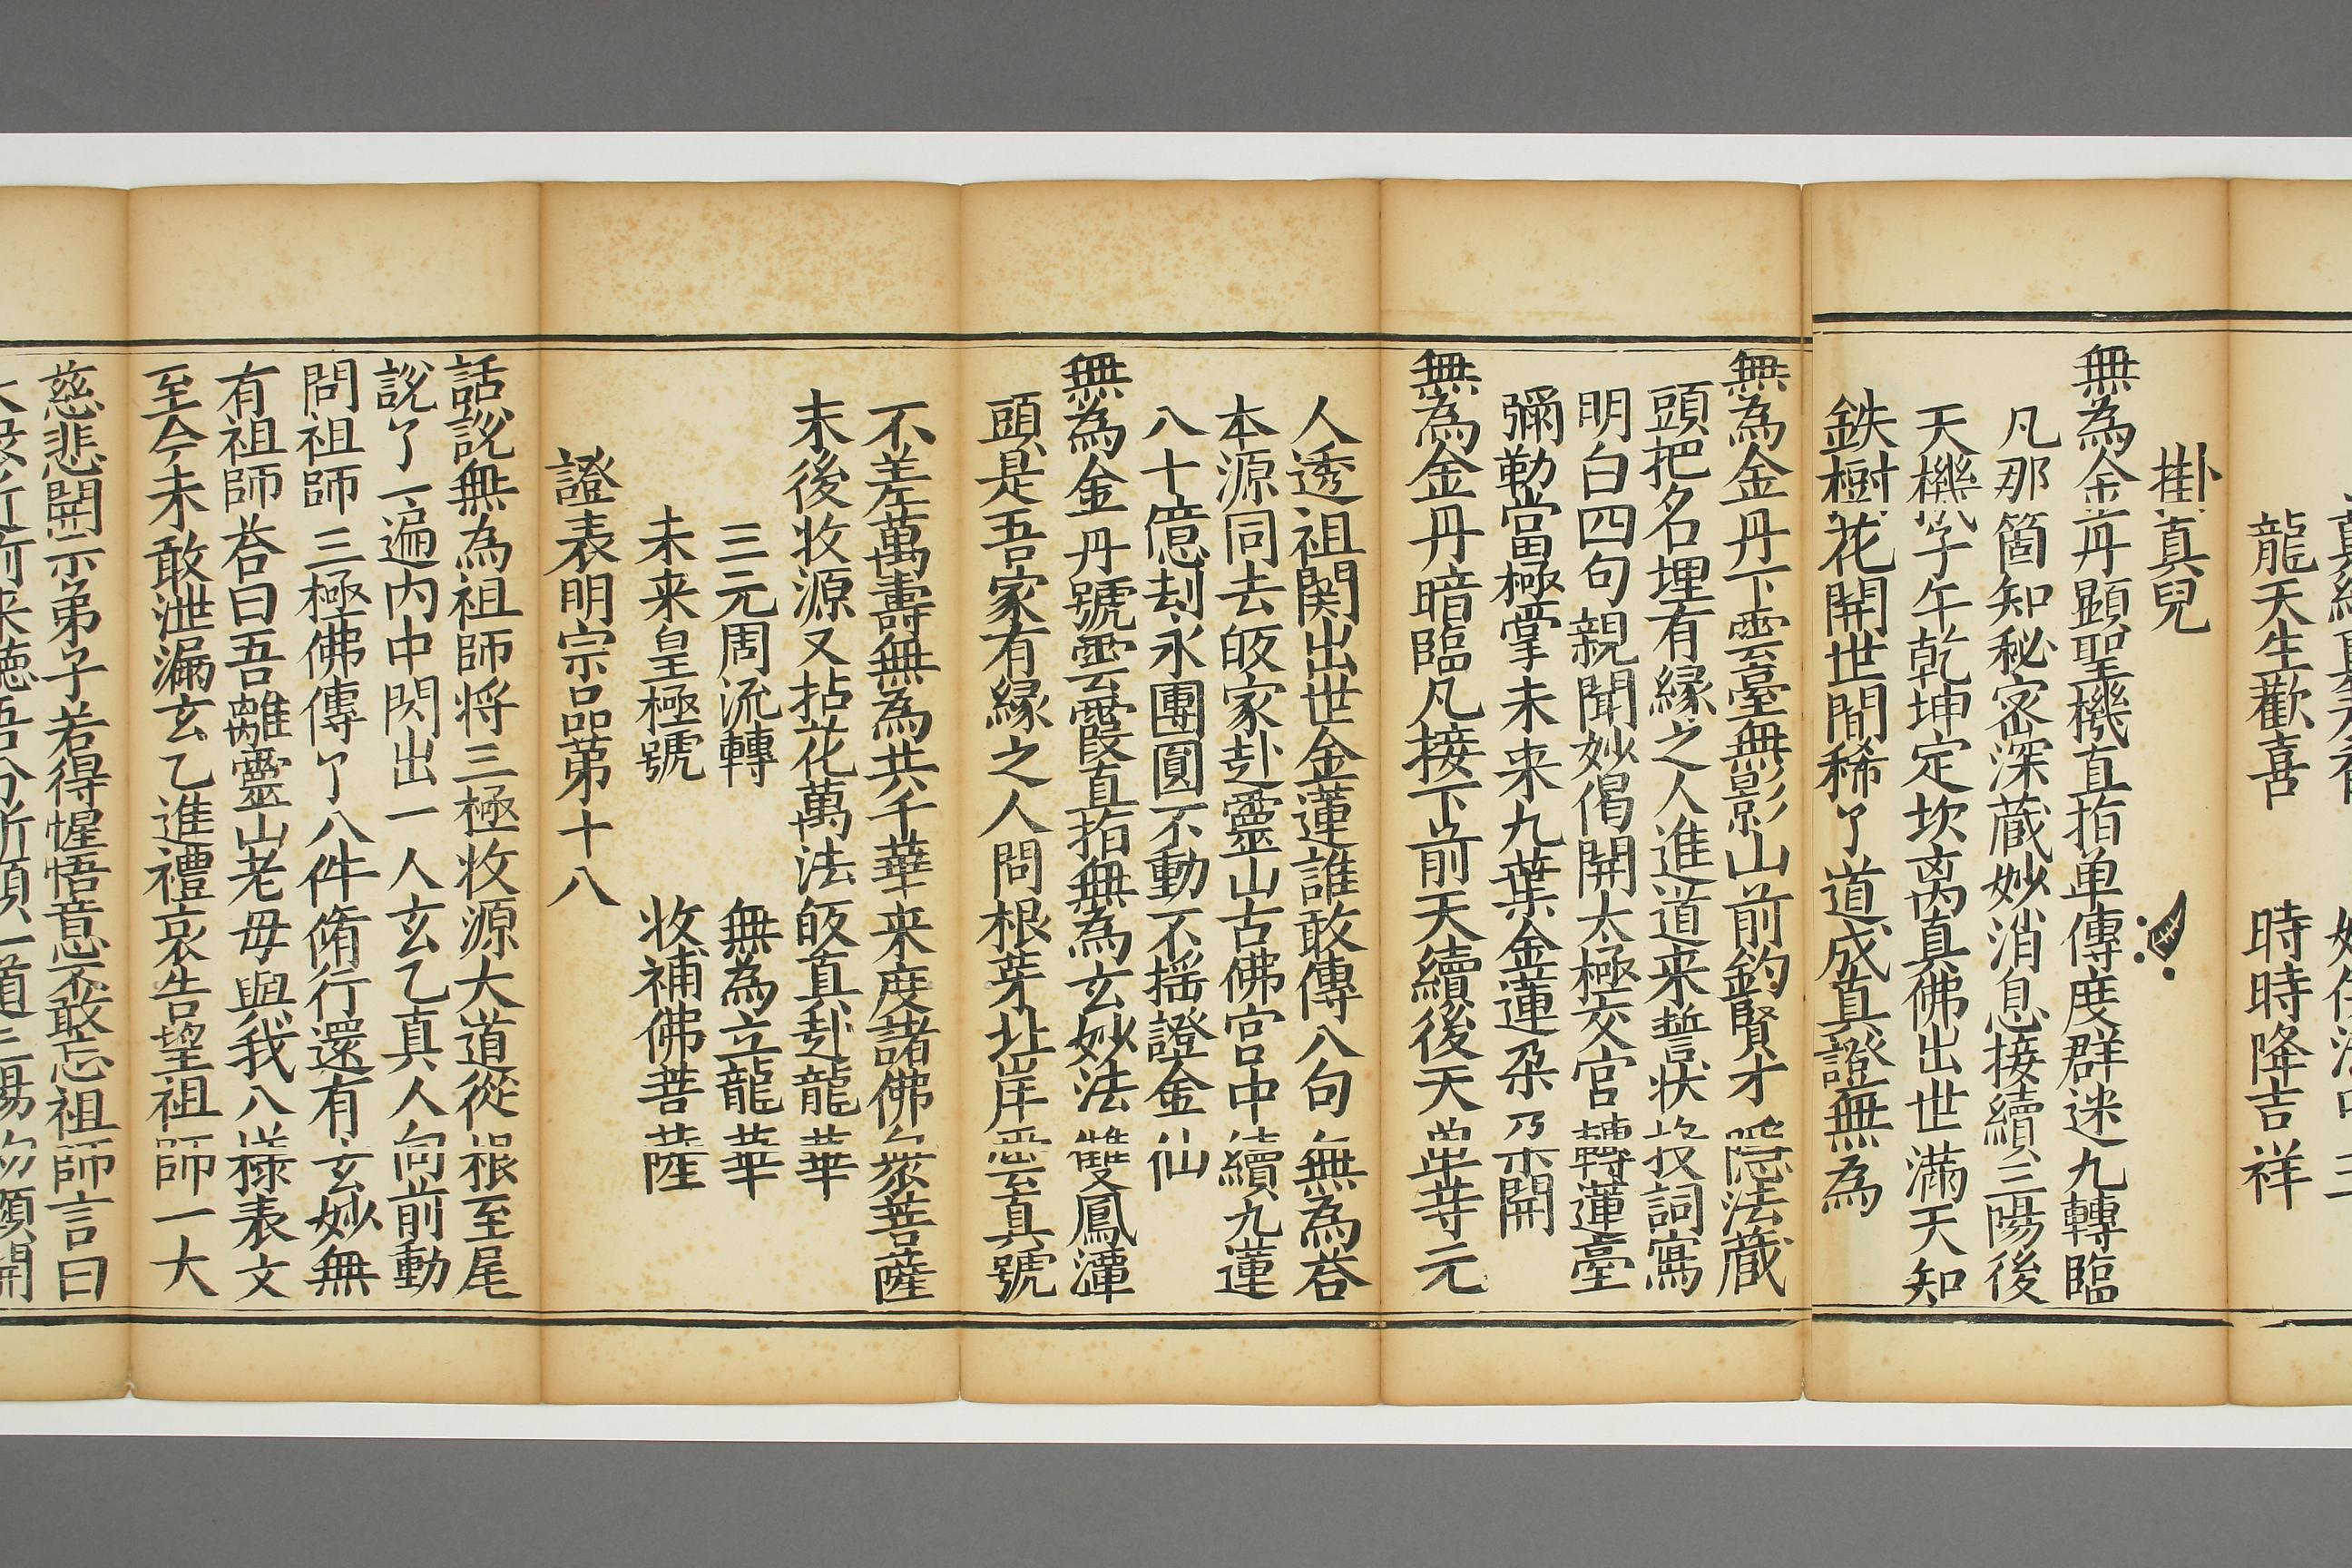 龍天生歡喜　時時降吉祥
掛真兒
無為金丹顯聖機直指单傳度群迷九轉臨
凡那箇知秘宻深蔵妙消息接續三陽後
天機子午乾坤定坎离真佛出世滿天知
鉄樹花開世間稀了道成真證無為
無為金丹下雲臺無影山前釣賢才隱法蔵
頭把名埋有縁之人進道来誓状投詞寫
明白四句親聞妙偈開太極交宫轉蓮臺
彌勒當極掌未来九葉金蓮朶朶開
無為金丹暗臨凡接下前天續後天 元
人透祖関出世金蓮誰敢傳八句無為荅
本源同去皈家赴靈山古佛宫中續九蓮
八十億刦永團圓不動不摇證金仙
無為金丹號雲霞直指無為玄妙法雙鳳潭
頭是吾家有縁之人問根芽 岸 云真號
不差萬壽無為共千華来度諸佛衆菩薩
末後收源又拈花萬法皈真赴龍華
三元周流轉　無為立龍華
未来皇極號　收補佛菩薩
證表明宗品第十八
話説無為祖師将三極收源大道從根至尾
説了一遍内中閃出一人玄乙真人向前動
問祖師三極佛傳了八件脩行還有玄妙無
有祖師荅曰吾離靈山老母與我八樣表文
至今未敢泄漏玄乙進禮哀告望祖師一大
慈悲開示弟子若得惺悟意不敢忘祖師言曰